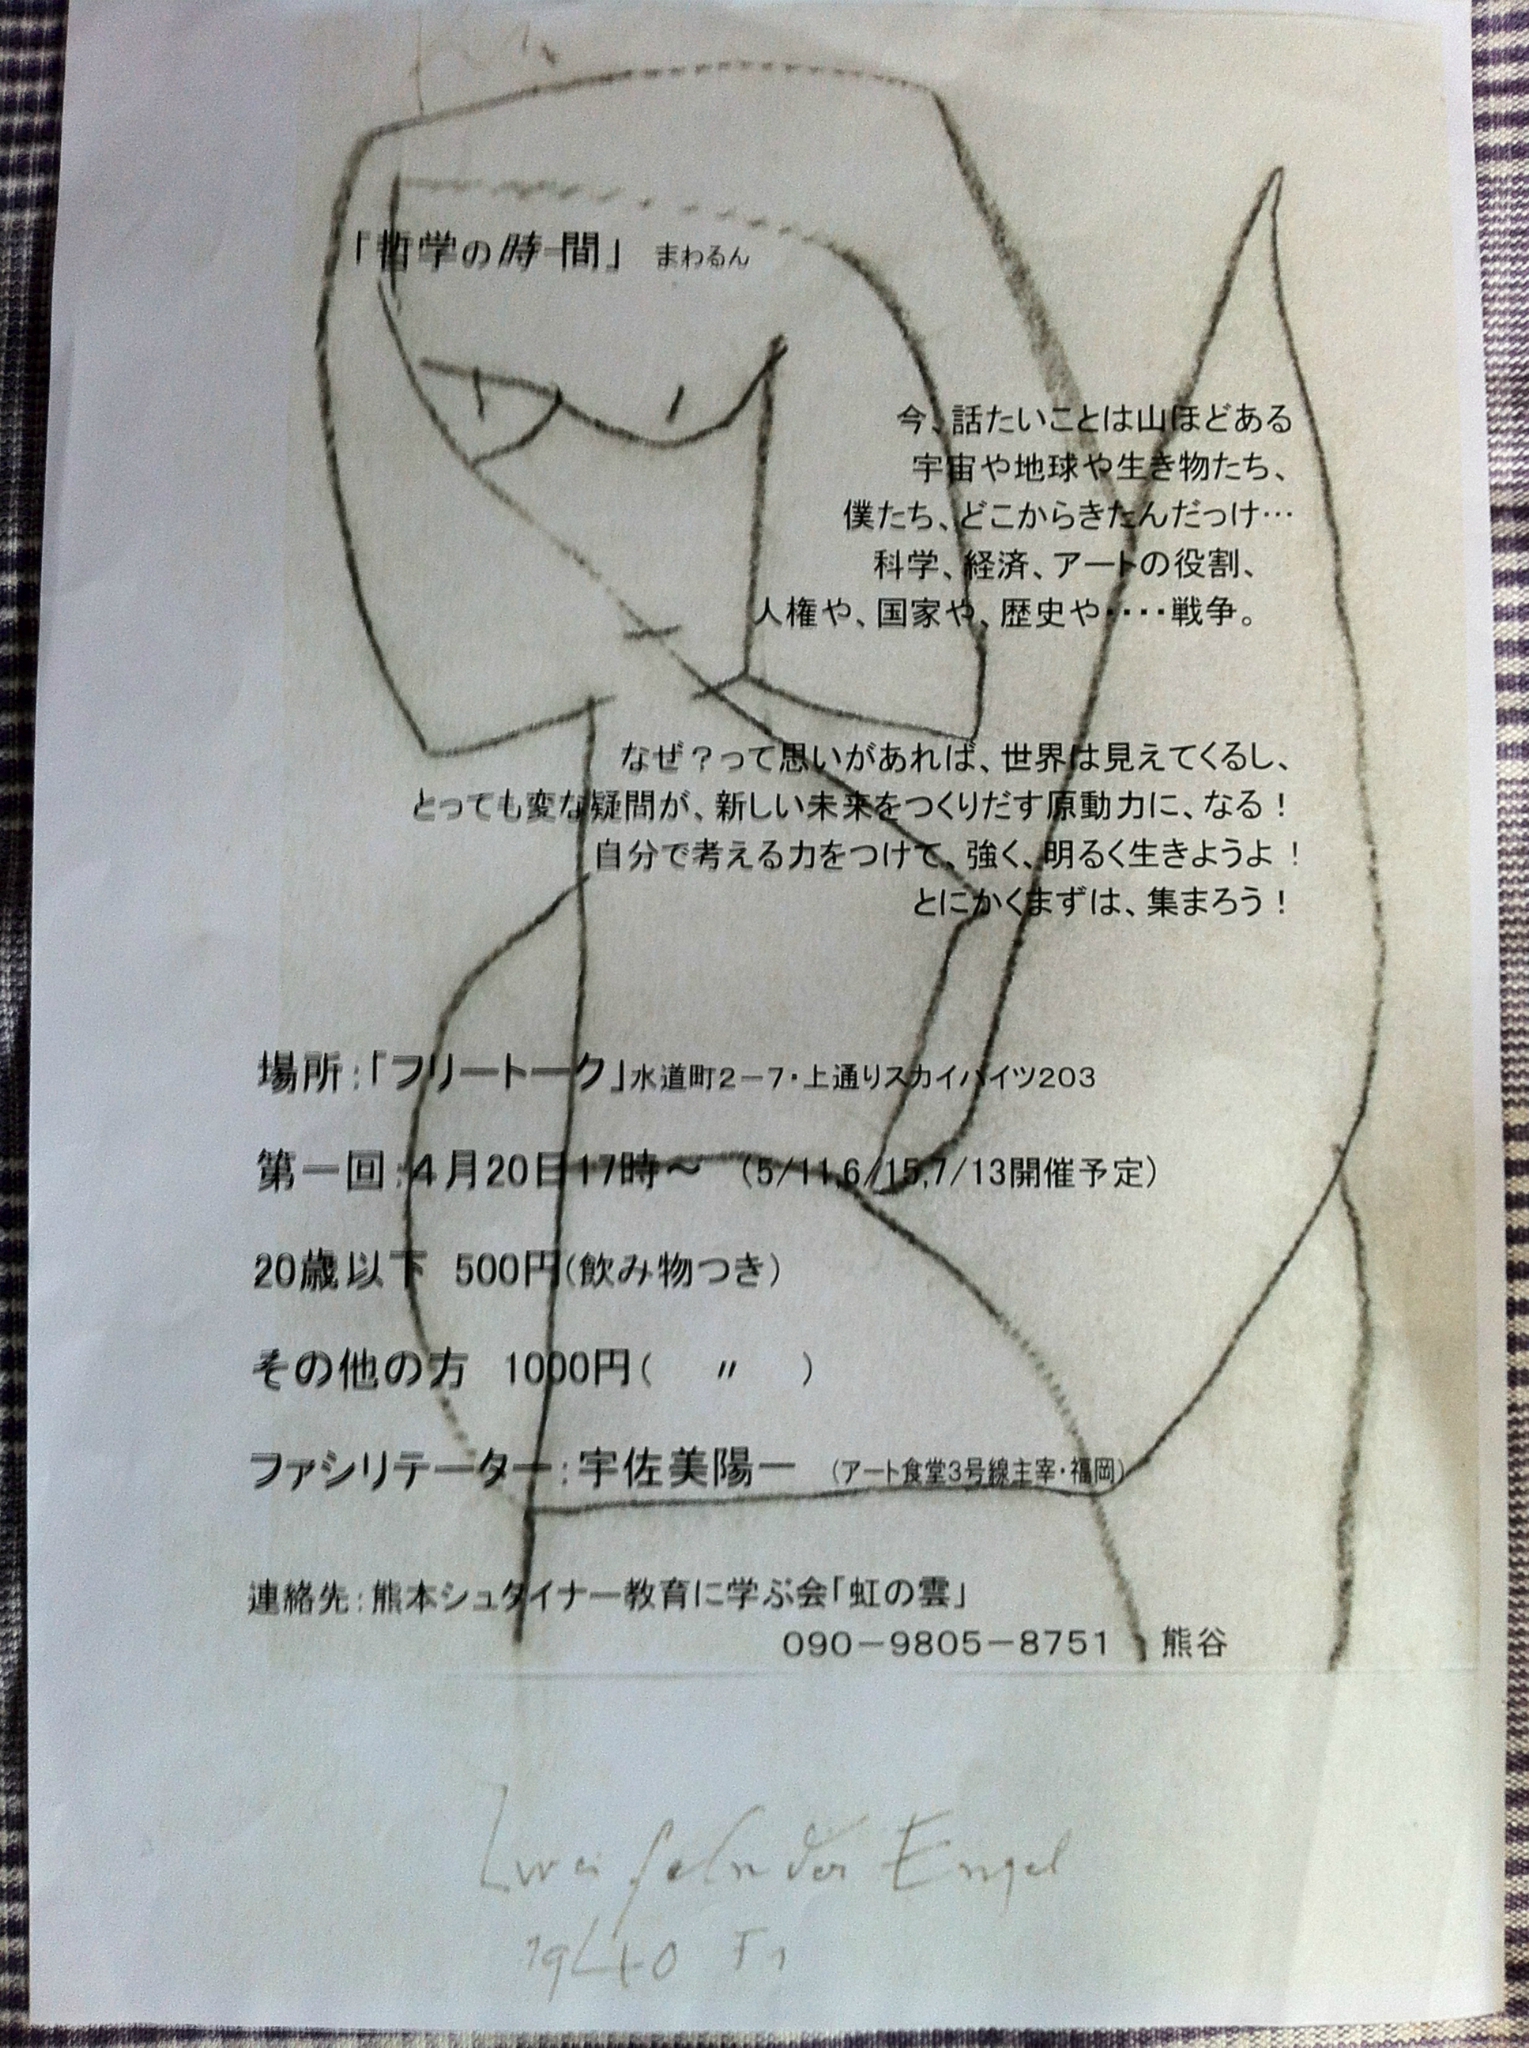 「哲学の時間」 まわるん
今、話たいことは山ほどある
宇宙や地球や生き物たち、
僕たち、どこからきたんだっけ…
科学、経済、アートの役割、
人権や、国家や、歴史や・・・・戦争。
なぜ？って思いがあれば、世界は見えてくるし、
とっても変な疑問が、新しい未来をつくりだす原動力に、なる！
自分で考える力をつけて、強く、明るく生きようよ！
とにかくまずは、集まろう！
場所:「フリートーク」水道町2－7・上通りスカイハイツ203
第一回:4月20日17時～ （5/11,6/15,7/13開催予定）
20歳以下 500円（飲み物つき）
その他の方 1000円（ 〃 ）
ファシリテーター:宇佐美陽一 （アート食堂3号線主宰・福岡）
連絡先:熊本シュタイナー教育に学ぶ会「虹の雲」
090－9805－8751 熊谷
Zweifelnder Engel
1940